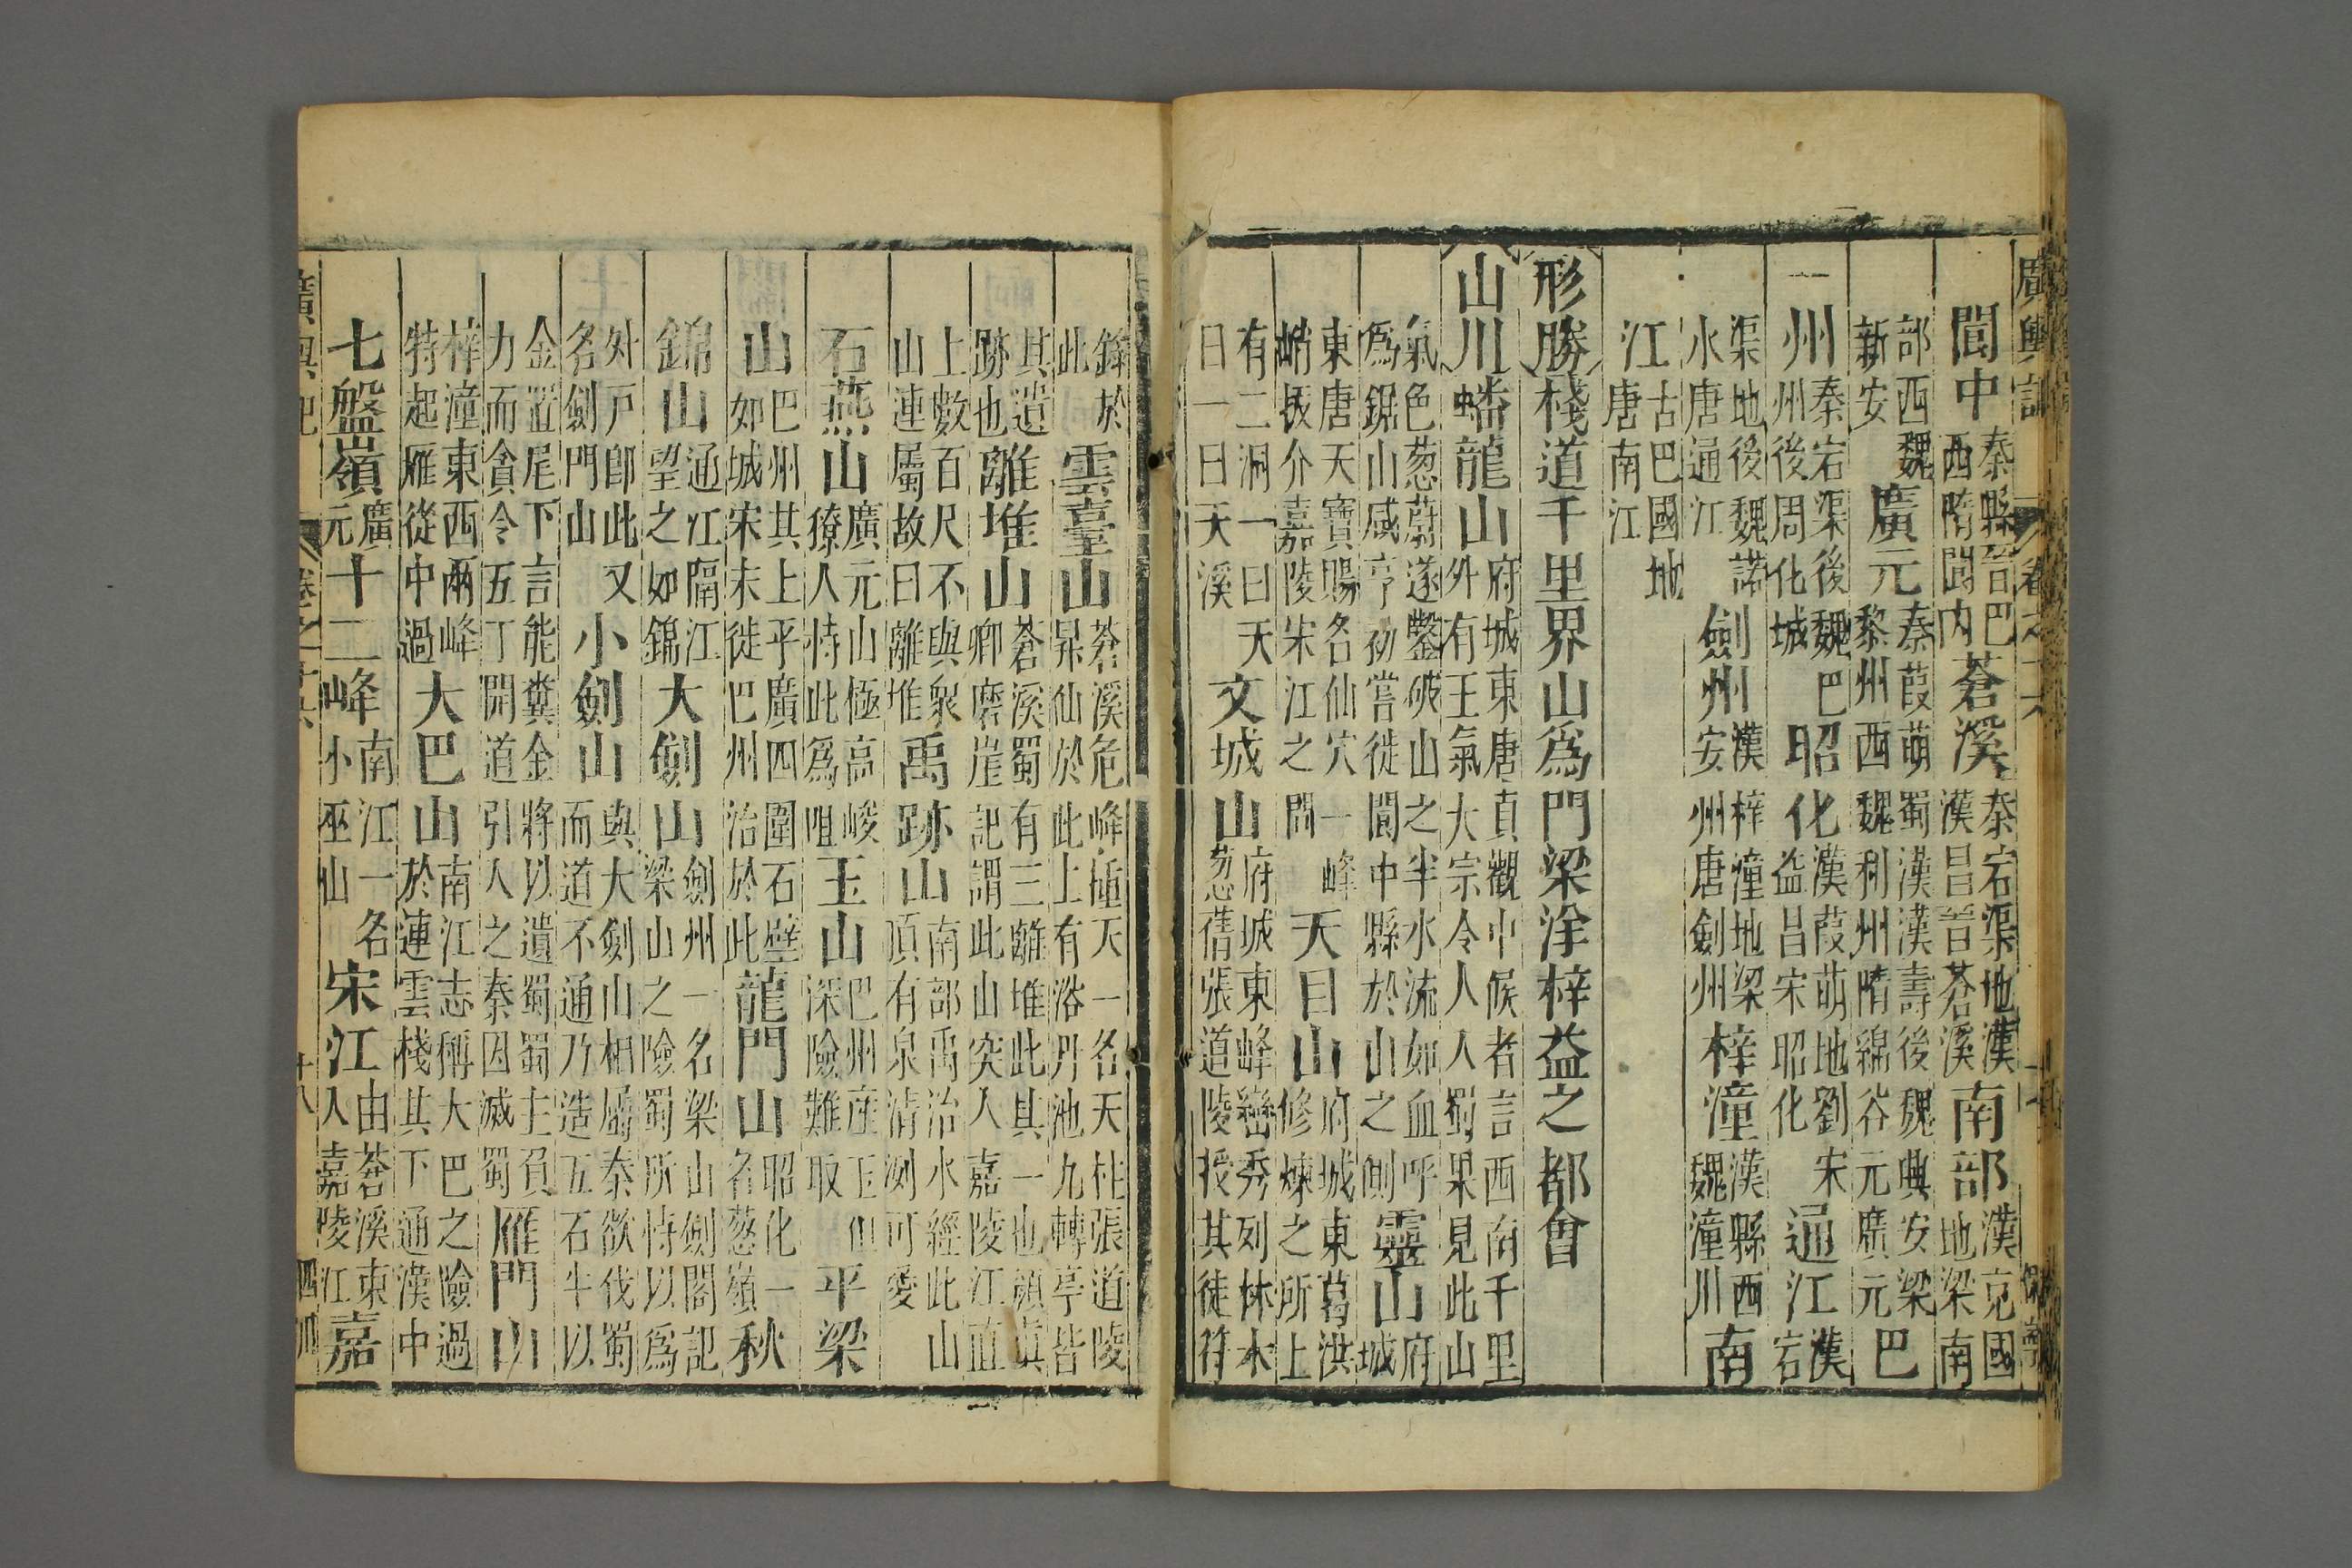 廣輿記 卷之十六 保寧
閬中秦縣晉巴西隋閬內蒼溪秦宕渠地漢漢昌晉蒼溪南部漢充國地梁南
部西魏新安廣元秦葭萌蜀漢漢壽後魏典安梁黎州西魏利州隋綿谷元廣元巴
州秦宕渠後魏巴州後周化城昭化漢葭萌地劉宋益昌宋昭化通江漢宕
渠地後魏諾水唐通江劍州漢梓潼地梁安州唐劍州梓潼漢縣西魏潼川南
江古巴國地唐南江
形勝棧道千里界山爲門梁洋梓益之都會
山川蟠龍山府城東唐貞觀中候者言西南千里外有王氣大宗令人入蜀果見此山
氣色葱蔚遂鑿破山之半水流如血呼爲鋸山咸亨初嘗徙閬中縣於山之側靈山府城
東唐天寶賜名仙穴一峰峭拔介嘉陵宋江之間天目山府城東葛洪修煉之所上
有二洞一曰天曰一曰天溪文城山府城東峰巒秀列林木葱蒨張道陵授其徒符
籙於此雲臺山蒼溪危峰揷天一名天柱張道陵昇仙於此上有浴丹池九轉亭皆
其遺跡也離堆山蒼溪蜀有三離堆此其一也顏眞卿磨崖記謂此山突入嘉陵江直
上數百尺不與衆山連屬故曰離堆禹跡山南部禹治水經此山頂有泉清洌可愛
石燕山廣元山極高峻獠人恃此爲咀玉山巴州產玉但深險難取平梁
山巴州其上平廣四圍石壁如城宋末徙巴州治於此龍門山昭化一名葱嶺秋
錦山通江隔江望之如錦大劍山劍州一名梁山劍閣記梁山之險蜀所恃以爲
外戶卽此又名劍門山小劍山與大劍山相屬秦欲伐蜀而道不通乃造五石牛以
金置尾下言能糞金將以遺蜀蜀主負力而貪令五丁開道引人之秦因滅蜀雁門山
梓潼東西兩峰特起雁從中過大巴山南江志稱大巴之險過於連雲棧其下通漢中
七盤嶺廣元十二峰南江一名小巫山宋江由蒼溪東入嘉陵江嘉
廣輿記 卷之十六 十八 四川